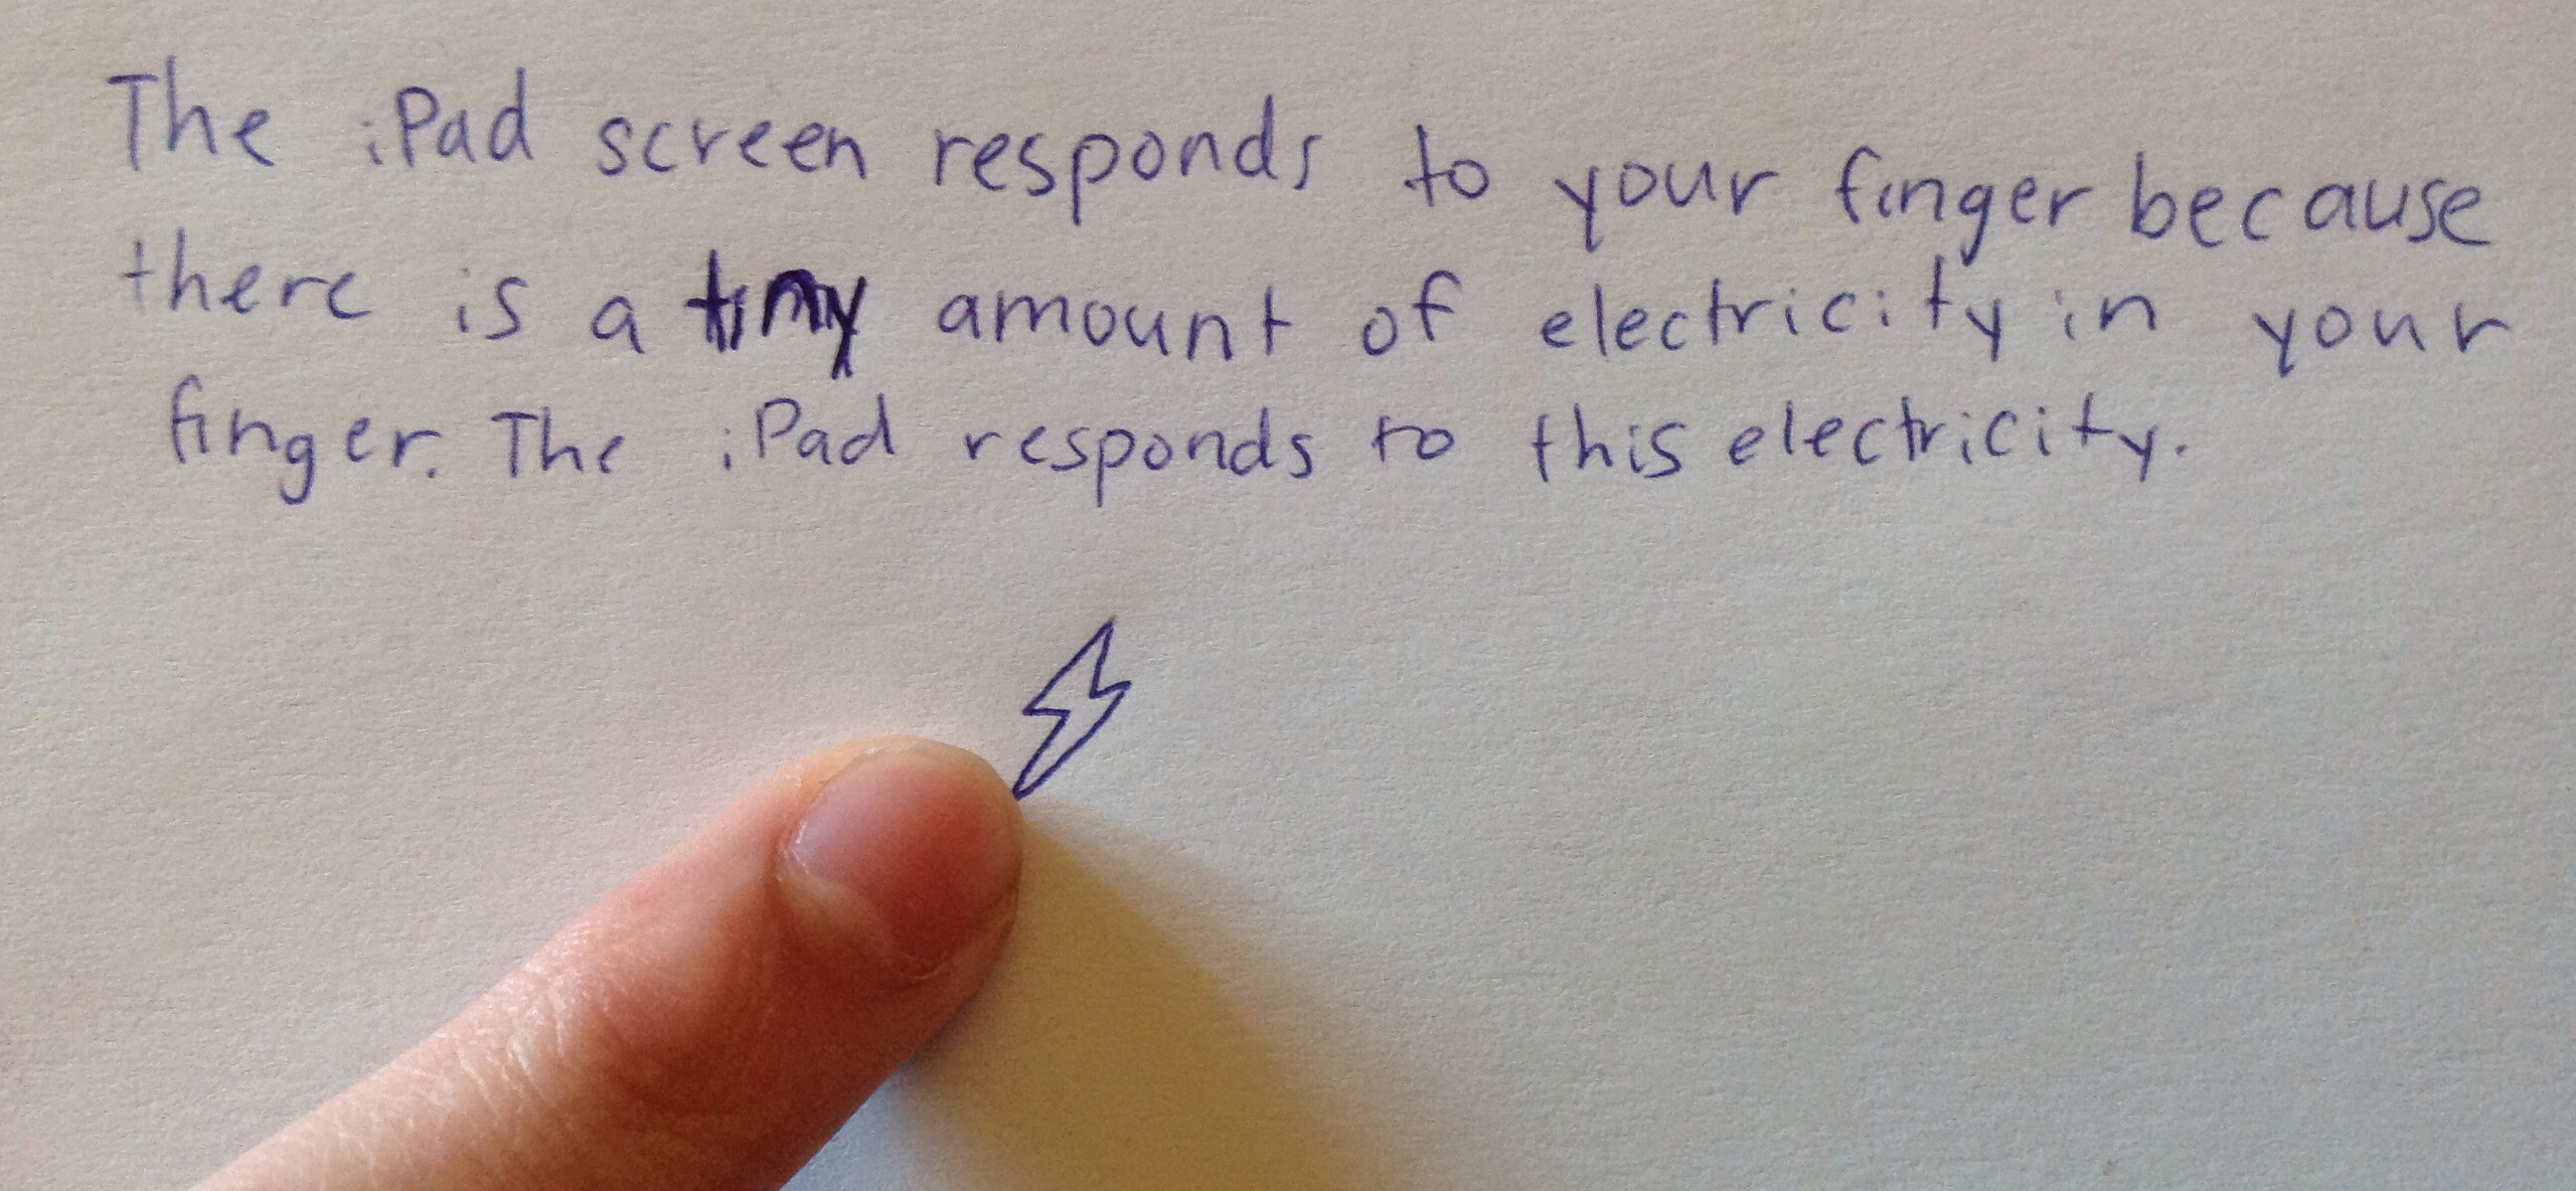 The iPad screen responds to your finger because
there is a tiny amount of electricity in your
finger. The iPad responds to this electricity.